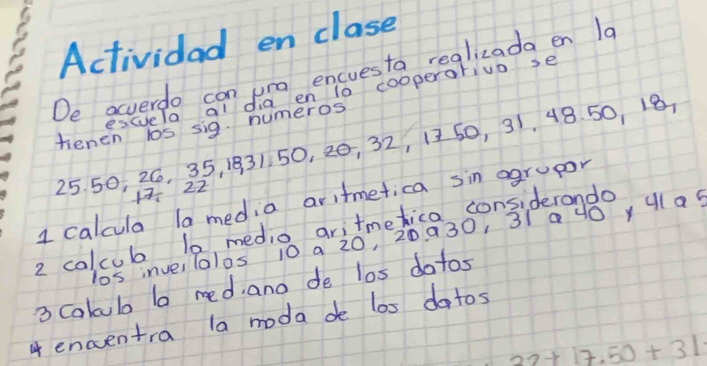 Actividad en clase
De acuerdo con una encuesta realizada en la
escuela al dia en la cooperativa se
tienen los sig. numeros
25.50, 26, 35, 18, 31.50, 20, 32, 17.50, 31, 48.50, 18,
17, 22
1 calcula la media aritmetica sin agrupar
2 calcula la media aritmetica considerando
los invervalos 10 a 20, 20 a 30, 31 a 40 y 41 a 5
3 calcula la mediana de los datos
4 encuentra la moda de los datos
22 + 17.50 + 31